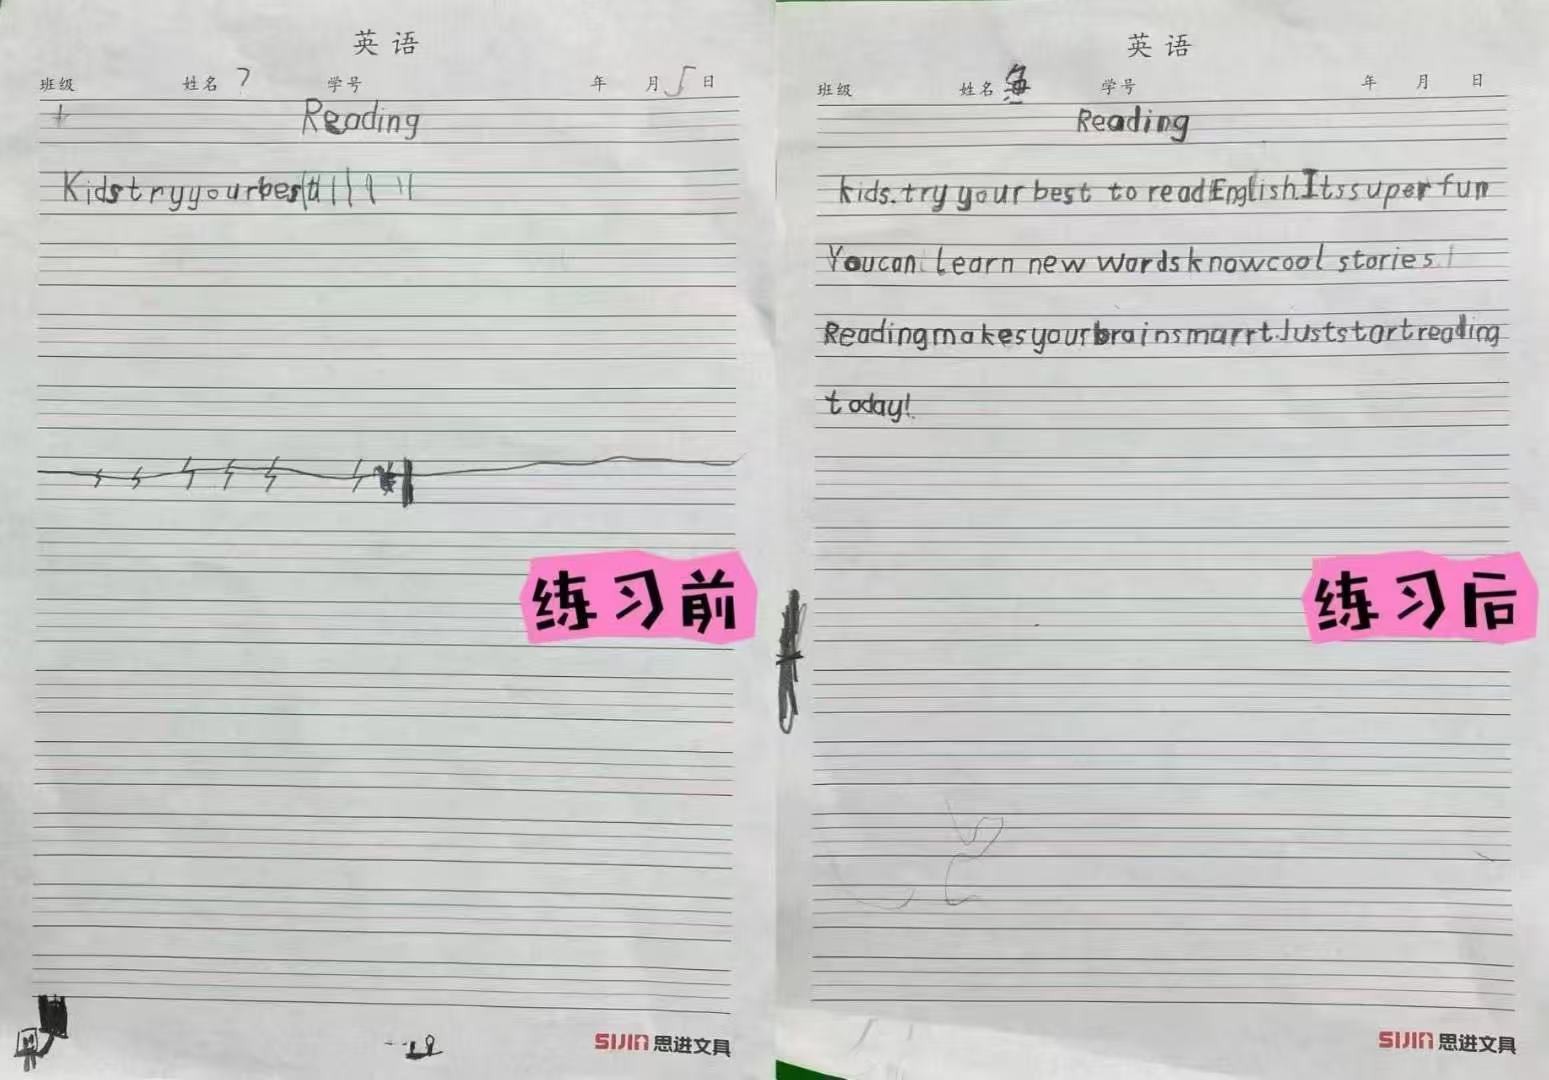 英语
班级 姓名 ? 学号 年 月 5 日
Reading
Kidstryyourbest
练习前
SIJIN 思进文具
英语
班级 姓名 学号 年 月 日
Reading
kids.try your best to readEnglish.Itssuper fun
Youcan learn new wordsknowcool stories.
Readingmakesyourbrainsmarrt.Juststartreading
today!
练习后
SIJIN 思进文具